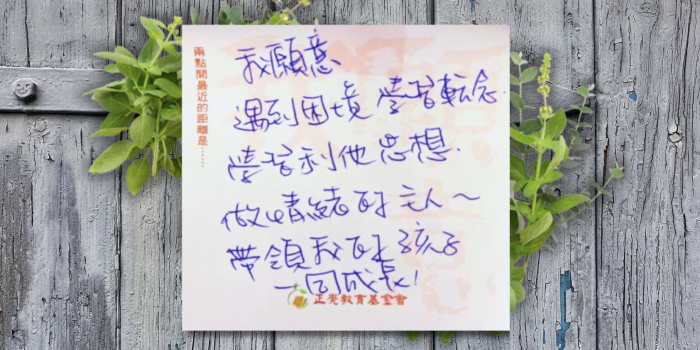 兩點間最近的距離是……
我願意
遇到困境 學習轉念.
學習利他思想.
做情緒的主人～
帶領我的孩子
一同成長!
正覺教育基金會